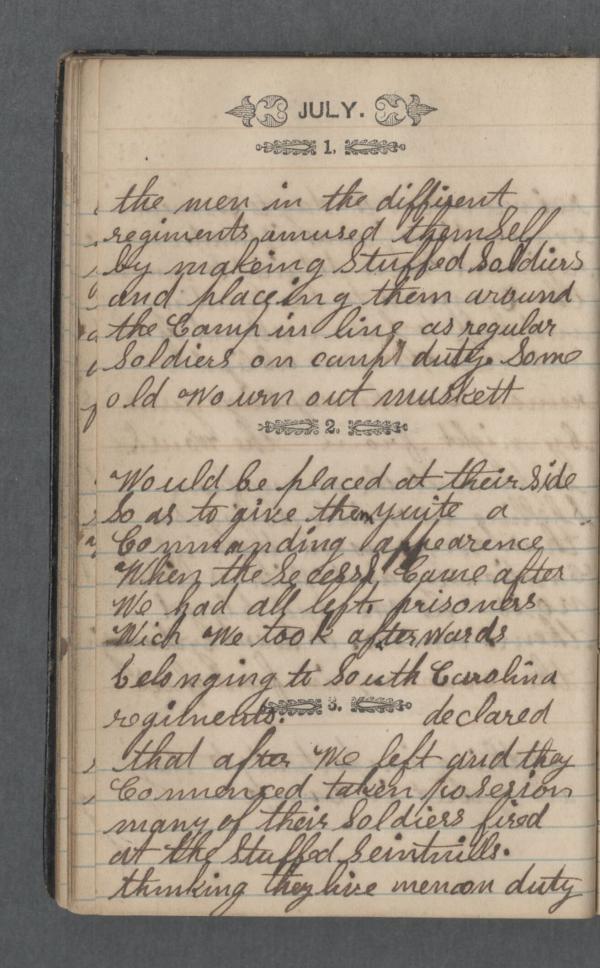 JULY.
1.
the men in the diffirent
regiments amused themself
by makeing Stuffed Soldiers
and placeing them around
the Camp in line as regular
Soldiers on camp duty. Some
old Wourn out muskett
2.
Would be placed at their side
So as to give them quite a
Commanding appearence
When the Secessh Came after
We had all left. prisoners
Wich We took afterwards
belonging to South Carolina
3.
regiments. declared
that after We left and they
Comenced taken posesion
many of their Soldiers fired
at the Stuffed Seintnills.
thinking they live men on duty